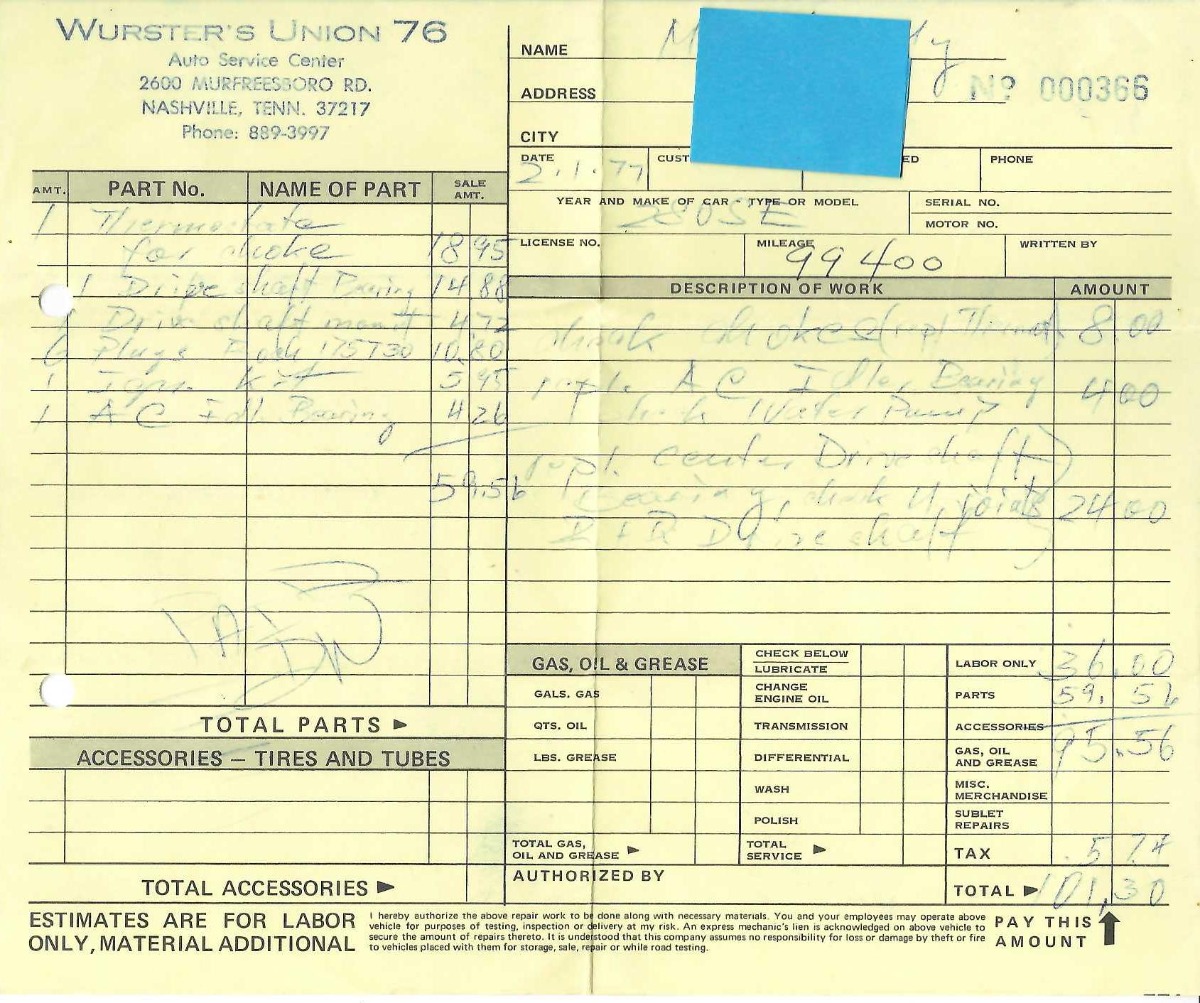 WURSTER'S UNION 76
Auto Service Center
2600 MURFREESBORO RD.
NASHVILLE, TENN. 37217
Phone: 889-3997
NAME M y
ADDRESS
Nº 000366
CITY
DATE 2.1.77 CUST ED PHONE
YEAR AND MAKE OF CAR - TYPE OR MODEL 280SE
SERIAL NO.
MOTOR NO.
LICENSE NO. MILEAGE 99400 WRITTEN BY
AMT. PART No. NAME OF PART SALE AMT.
1 Thermostate
for choke 18 95
1 Drive shaft Bearing 14 88
1 Drive shaft mount 4.72
6 Plugs Bosh 175T30 10.80
1 Ign. kit 5 95
1 AC Idl. Bearing 4 26
59.56
PAID
TOTAL PARTS ►
ACCESSORIES – TIRES AND TUBES
TOTAL ACCESSORIES ►
DESCRIPTION OF WORK AMOUNT
choke 8.00
AC Idler Bearing 4 00
Water Pump
repl. center Drive shaft
Bearing, check U, joints 24 00
R + R Drive shaft
GAS, OIL & GREASE
GALS. GAS
QTS. OIL
LBS. GREASE
TOTAL GAS, OIL AND GREASE ►
CHECK BELOW
LUBRICATE
CHANGE ENGINE OIL
TRANSMISSION
DIFFERENTIAL
WASH
POLISH
TOTAL SERVICE ►
AUTHORIZED BY
LABOR ONLY 36.00
PARTS 59.56
ACCESSORIES
GAS, OIL AND GREASE 95.56
MISC. MERCHANDISE
SUBLET REPAIRS
TAX 5 74
TOTAL ► 101,30
ESTIMATES ARE FOR LABOR
ONLY, MATERIAL ADDITIONAL
I hereby authorize the above repair work to be done along with necessary materials. You and your employees may operate above
vehicle for purposes of testing, inspection or delivery at my risk. An express mechanic's lien is acknowledged on above vehicle to
secure the amount of repairs thereto. It is understood that this company assumes no responsibility for loss or damage by theft or fire
to vehicles placed with them for storage, sale, repair or while road testing.
PAY THIS
AMOUNT